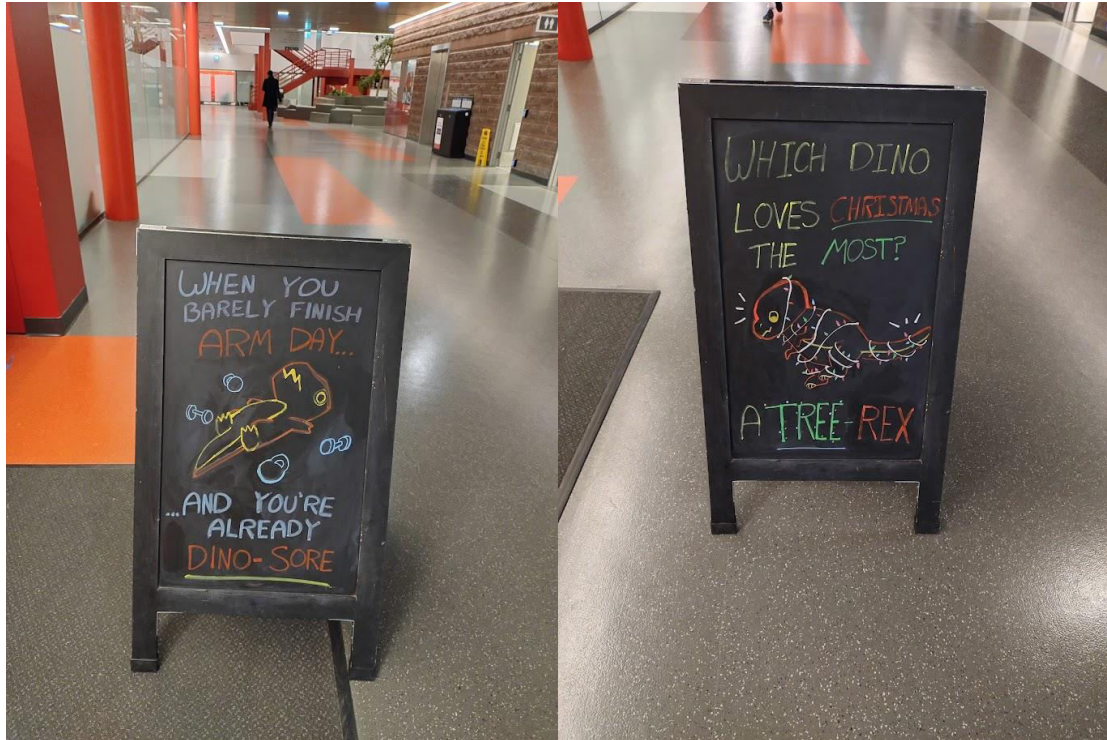 WHEN YOU
BARELY FINISH
ARM DAY...
...AND YOU'RE
ALREADY
DINO-SORE
WHICH DINO
LOVES CHRISTMAS
THE MOST?
A TREE-REX